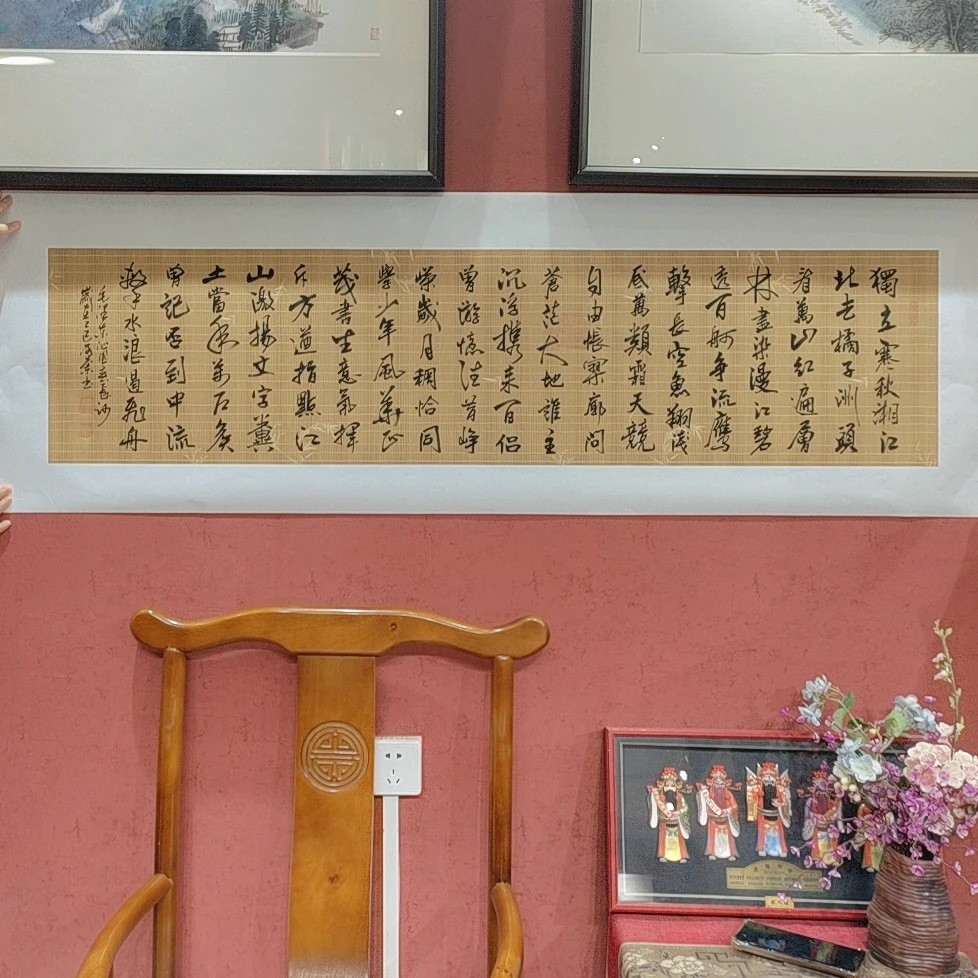 獨立寒秋湘江
北去橘子洲頭
看萬山紅遍層
林盡染漫江碧
透百舸争流鷹
擊長空魚翔淺
底萬類霜天競
自由悵寥廓問
蒼茫大地誰主
沉浮携来百侣
曾游憶往昔峥
嶸歲月稠恰同
學少年風華正
茂書生意氣揮
斥方遒指點江
山激揚文字糞
土當年萬户侯
曾記否到中流
擊水浪遏飛舟
毛澤東沁園春長沙
歲在乙巳